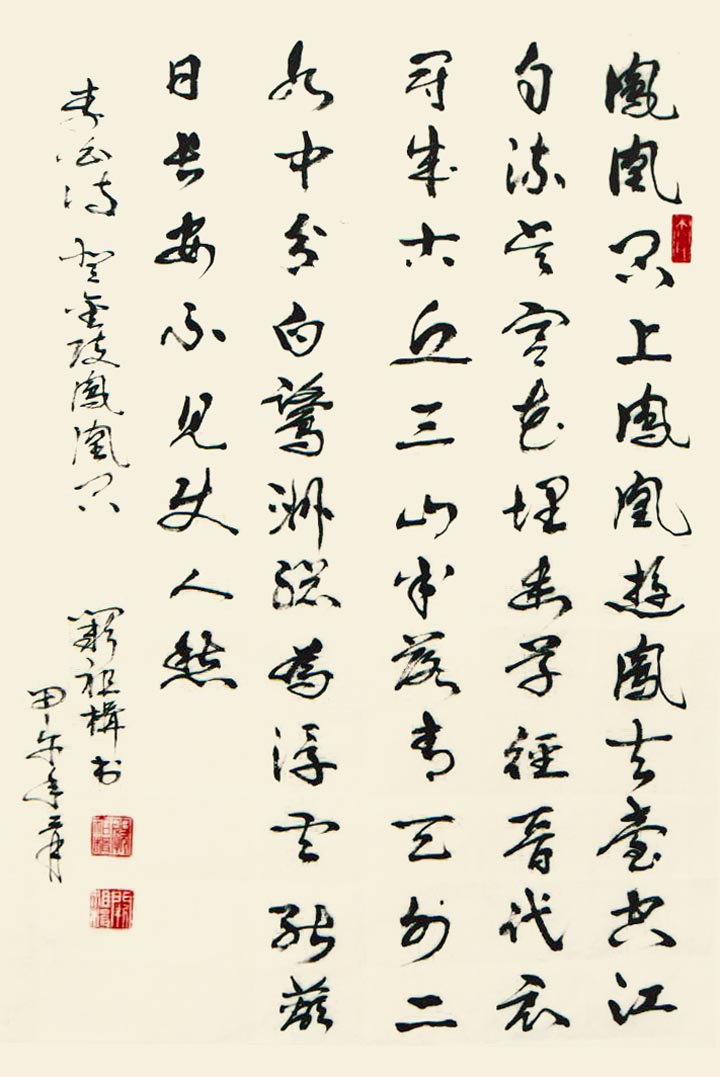 鳳凰台上鳳凰遊鳳去臺空江
自流吴宫花埋幽草径晋代衣
冠成古丘三山半落青天外二
水中分白鷺洲總為浮雲能蔽
日長安不見使人愁
李白诗 登金陵鳳凰台
祖楫书
甲午年月